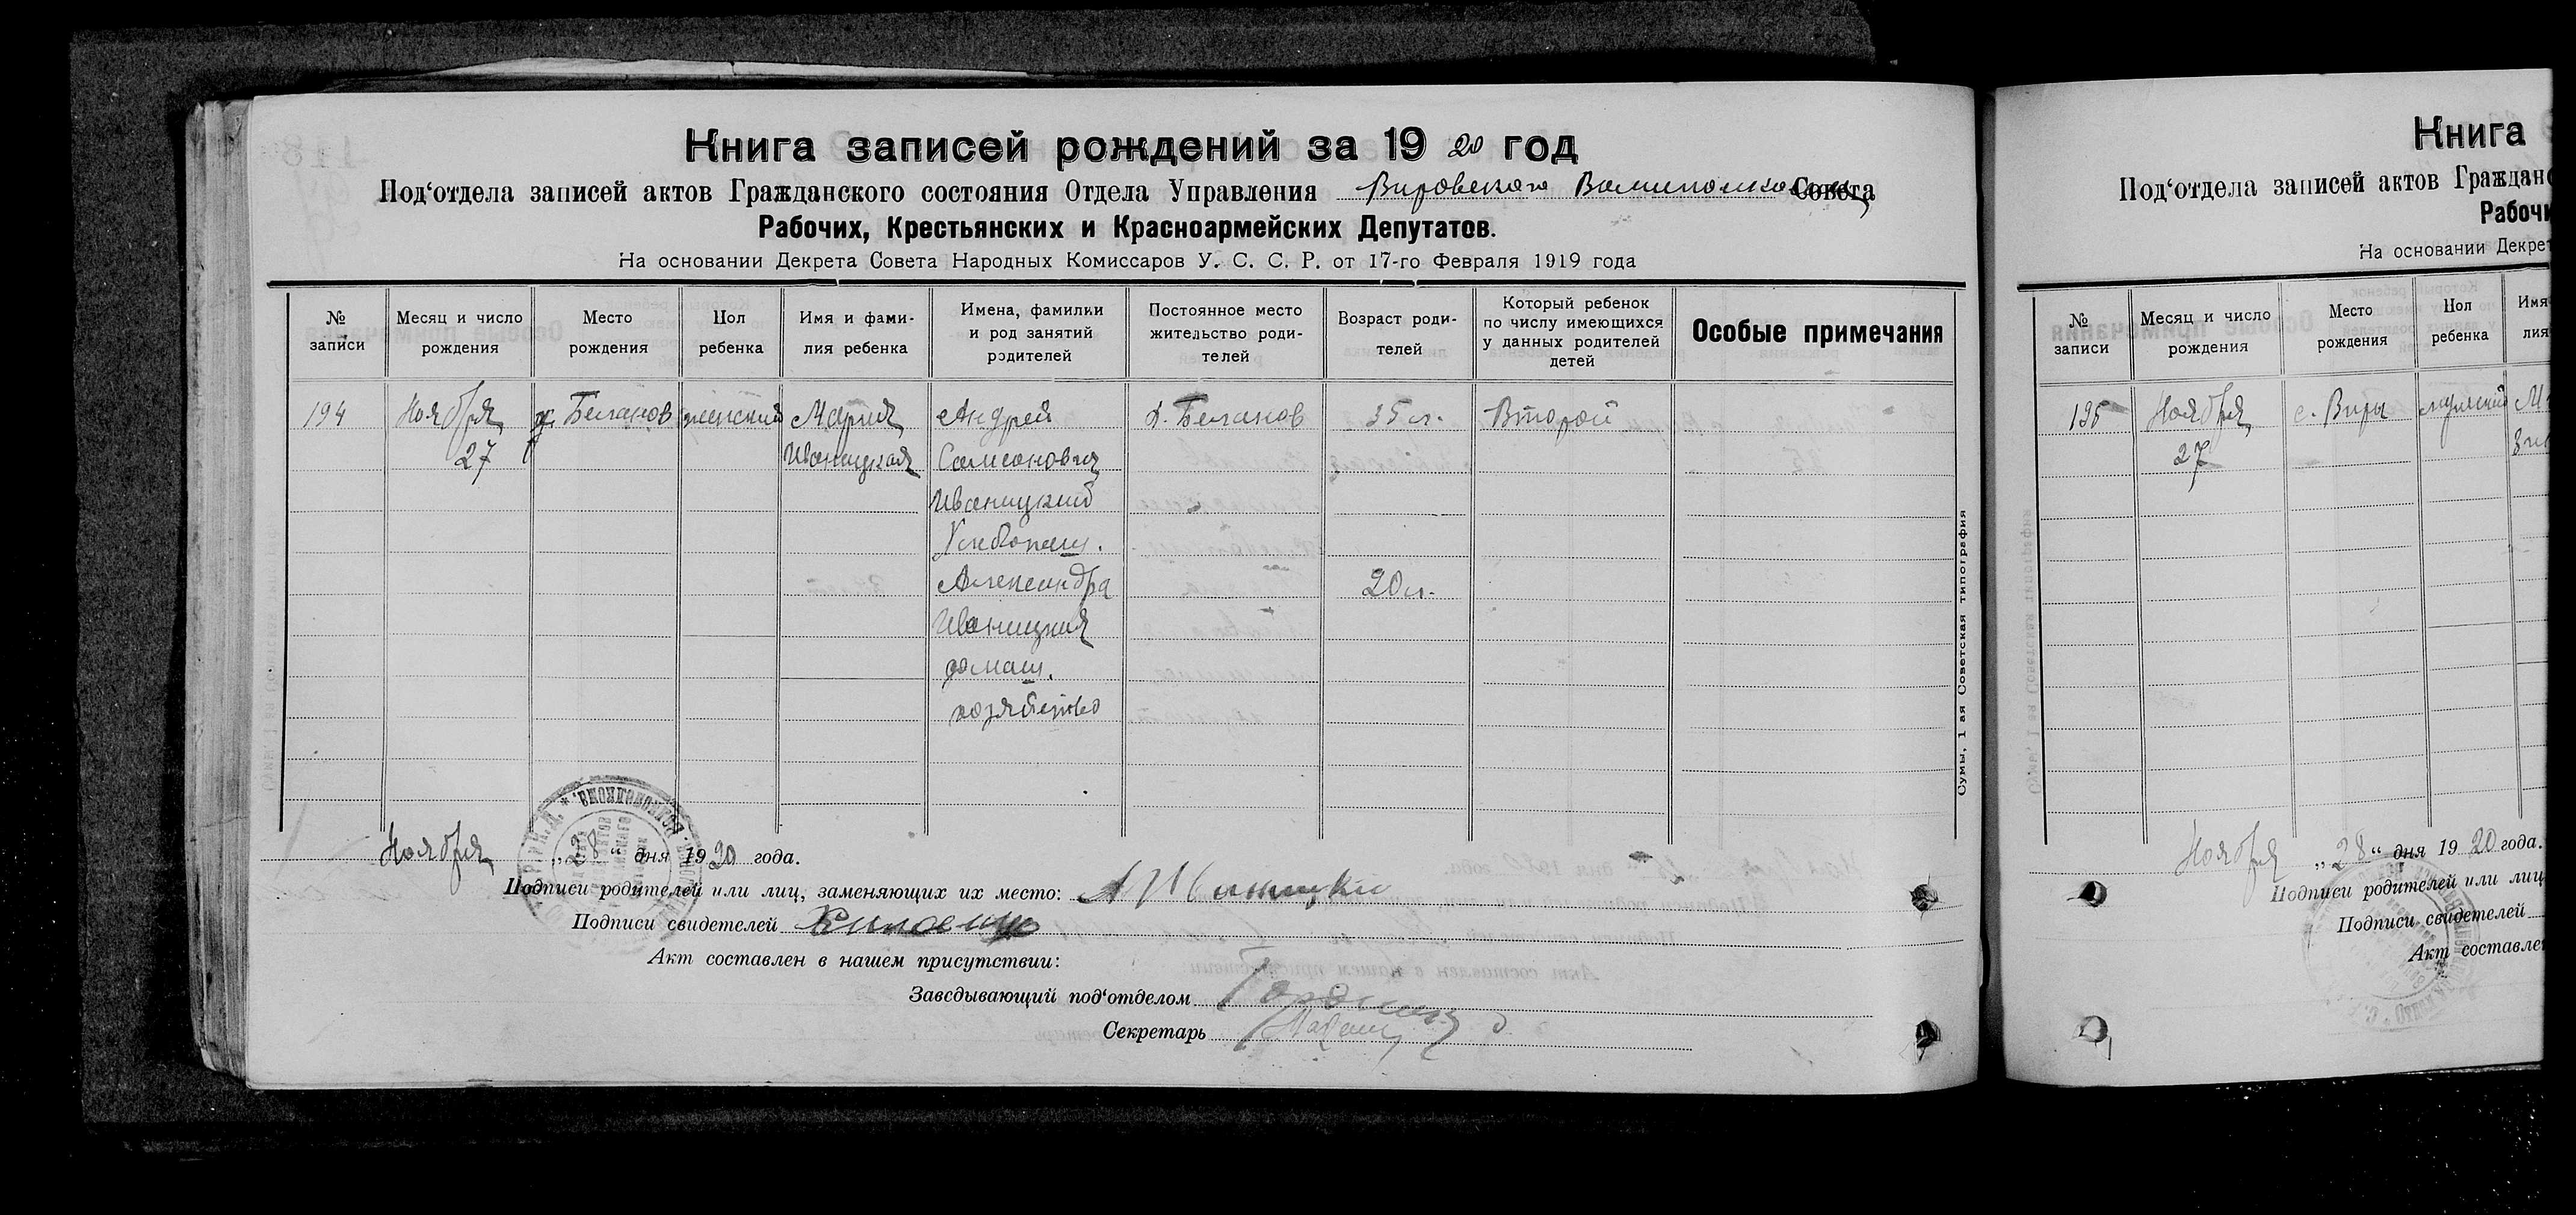 Книга записей рождений за 1920 год
Под‘отдела записей актов Гражданского состояния Отдела Управления Вировского Волисполкома Совета
Рабочих, Крестьянских и Красноармейских Депутатов.
На основании Декрета Совета Народных Комиссаров У. С. С. Р. от 17-го Февраля 1919 года
№ записи
Месяц и число рождения
Место рождения
Пол ребенка
Имя и фами-
лия ребенка
Имена, фамилии
и род занятий
родителей
Постоянное место
жительство роди-
телей
Возраст роди-
телей
Который ребенок
по числу имеющихся
у данных родителей
детей
Особые примечания
194 Ноября х. Беланов женский Мария Андрей х. Беланов 35 л. Второй
27 Иваницкая Самсонович
Иваницкий
Хлебопаш.
Александра 20 л.
Иваницкая
домаш.
хозяйство
Сумы, 1 ая Советская типография
Ноября „28“ дня 1920 года.
Подписи родителей или лиц, заменяющих их место: А Иваницки
Подписи свидетелей
Акт составлен в нашем присутствии:
Заведывающий под‘отделом
Секретарь
Книга
Под‘отдела записей актов Гражданс
Рабочи
На основании Декрет
№ записи
Месяц и число рождения
Место рождения
Пол ребенка
Имя
лия
195 Ноября с. Виры мужский
27
Ноября „28“ дня 1920 года.
Подписи родителей или лиц
Подписи свидетелей
Акт составле